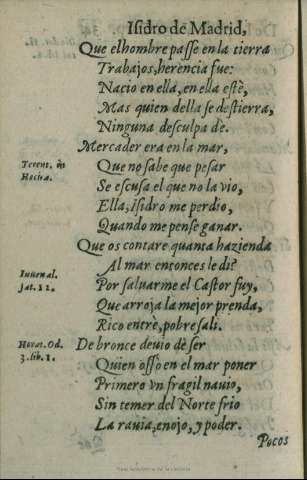 Isidro de Madrid,
Que el hombre passe en la tierra
Trabajos, herencia fue:
Nacio en ella, en ella estè,
Mas quien della se destierra,
Ninguna desculpa dè.
Mercader era en la mar,
Terent. in
Hecira.
Que no sabe que pesar
Se escusa el que no la vio,
Ella, isidro me perdio,
Quando me pense ganar.
Que os contare quanta hazienda
Iuuenal.
sat. 12.
Al mar entonces le di?
Por saluarme el Castor fuy,
Que arroja la mejor prenda,
Rico entre, pobre sali.
Horat. Od.
3. lib. 1.
De bronce deuio de ser
Quien ossò en el mar poner
Primero vn fragil nauio,
Sin temer del Norte frio
La rauia, enojo, y poder.
Pocos